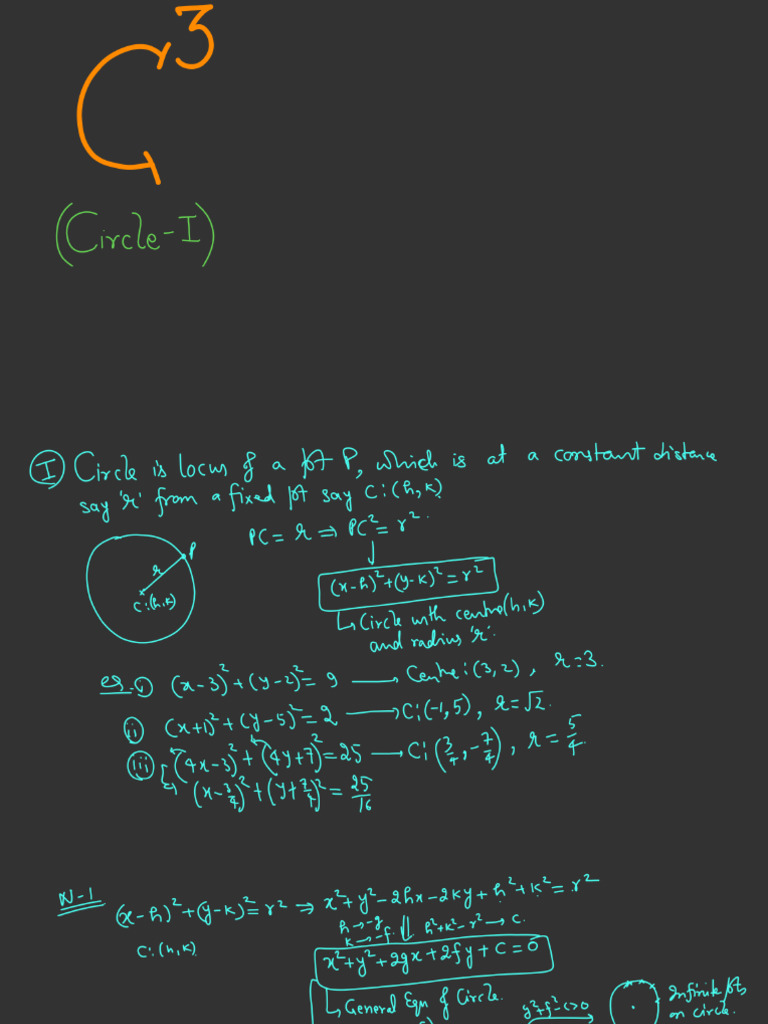 3
(Circle-I)
I Circle is locus of a pt P, which is at a constant distance
say 'r' from a fixed pt say C:(h,k)
PC = r ⇒ PC² = r².
P
r
C:(h,k)
(x-h)²+(y-k)²=r²
↳ Circle with centre(h,k)
and radius 'r'.
eg-i) (x-3)²+(y-2)²=9 → Centre:(3,2), r=3.
ii) (x+1)²+(y-5)²=2 → C:(-1,5), r=√2.
iii) (4x-3)²+(4y+7)²=25 → C:(3/4,-7/4), r=5/4.
(x-3/4)²+(y+7/4)²=25/16
N-1
(x-h)²+(y-k)²=r² ⇒ x²+y²-2hx-2ky+h²+k²=r²
C:(h,k)
h→-g
k→-f.
h²+k²-r²→c.
x²+y²+2gx+2fy+c=0
↳ General Eqn of Circle.
g²+f²-c>0
Infinite pts
on circle.